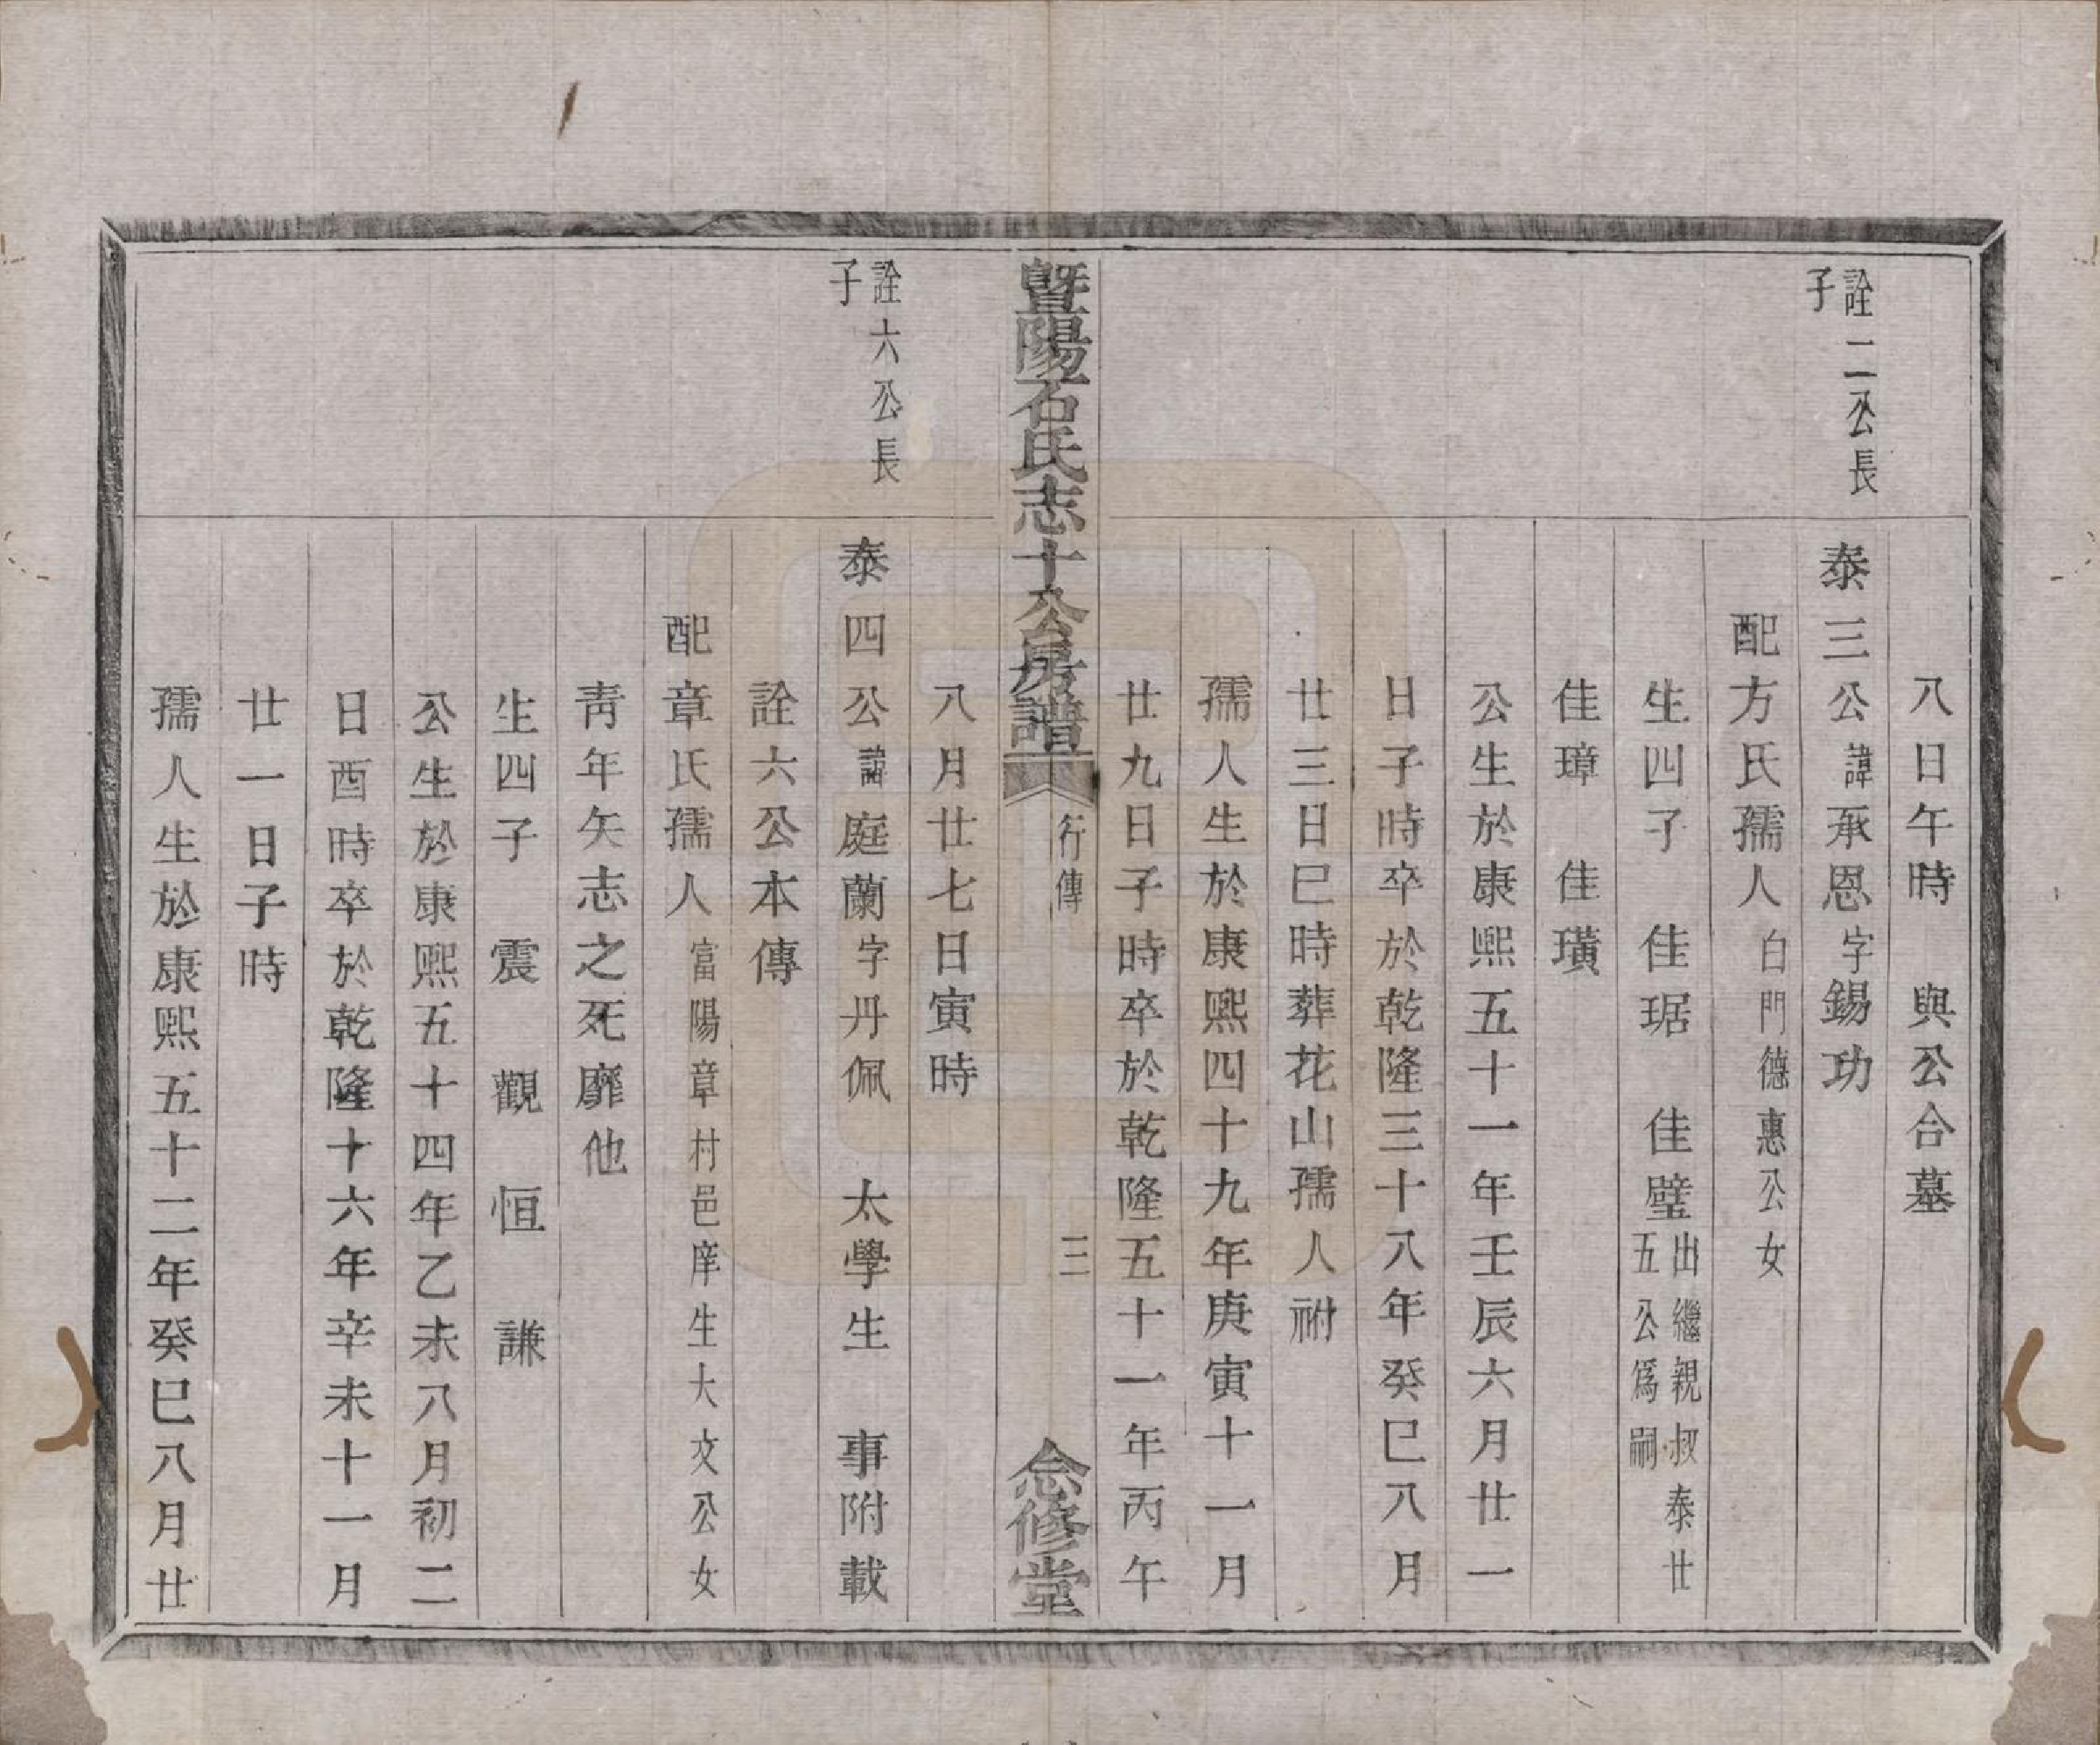 八日午時　與公合墓
詮二公長
子
泰三公諱承恩字錫功
配方氏孺人白門德惠公女
生四子　佳琚　佳璧出繼親叔泰廿
五公爲嗣
佳璋　佳璜
公生於康熙五十一年壬辰六月廿一
日子時卒於乾隆三十八年癸巳八月
廿三日巳時葬花山孺人祔
孺人生於康熙四十九年庚寅十一月
廿九日子時卒於乾隆五十一年丙午
暨陽石氏志十公房譜
行傳
三
念修堂
八月廿七日寅時
詮六公長
子
泰四公諱庭蘭字丹佩　太學生　事附載
詮六公本傳
配章氏孺人富陽章村邑庠生大文公女
靑年矢志之死靡他
生四子　震　觀　恒　謙
公生於康熙五十四年乙未八月初二
日酉時卒於乾隆十六年辛未十一月
廿一日子時
孺人生於康熙五十二年癸巳八月廿